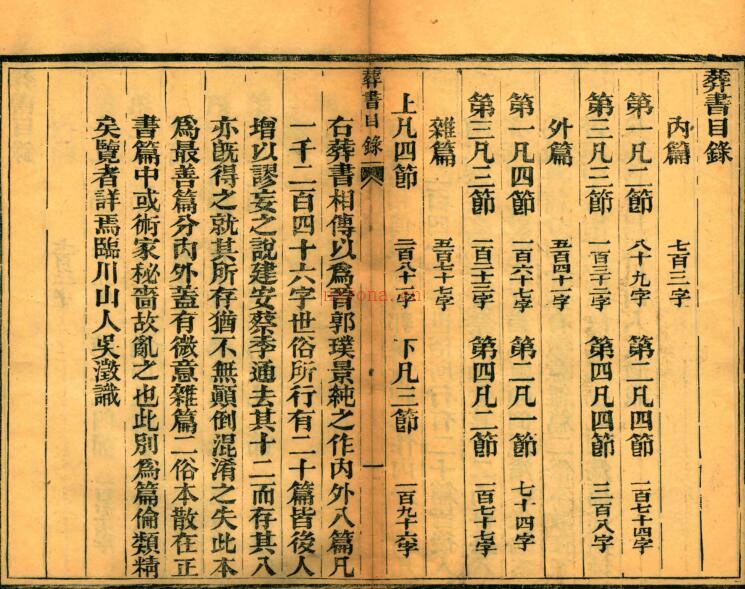 葬書目錄
內篇　七百三字
第一凡二節　八十九字　第二凡四節　一百七十四字
第三凡三節　一百三十二字　第四凡四節　三百八字
外篇　五百四十一字
第一凡四節　一百六十七字　第二凡一節　七十四字
第三凡三節　一百二十三字　第四凡二節　一百七十七字
雜篇　五百七十七字
上凡四節　三百八十一字　下凡三節　一百九十六字
葬書目錄　一
右葬書相傳以爲晉郭璞景純之作內外八篇凡
一千二百四十六字世俗所行有二十篇皆後人
增以謬妄之說建安蔡季通去其十二而存其八
亦旣得之就其所存猶不無顚倒混淆之失此本
爲最善篇分內外蓋有微意雜篇二俗本散在正
書篇中或術家秘嗇故亂之也此別爲篇倫類精
矣覽者詳焉臨川山人吳澂識